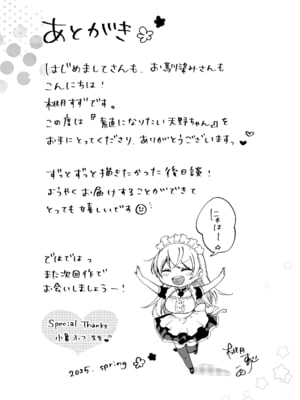 あとがき
はじめましてさんも、お馴染みさんも
こんにちは!
桃月すずです。
この度は『素直になりたい天野ちゃん』を
お手にとってくださり、ありがとうございますっ
ずっとずっと描きたかった後日談!
ようやくお届けすることができて
とっても嬉しいです
ではではっ
また次回作で
お会いしましょうー!
にぱはー
Special Thanks
桃月
すず
2025. spring